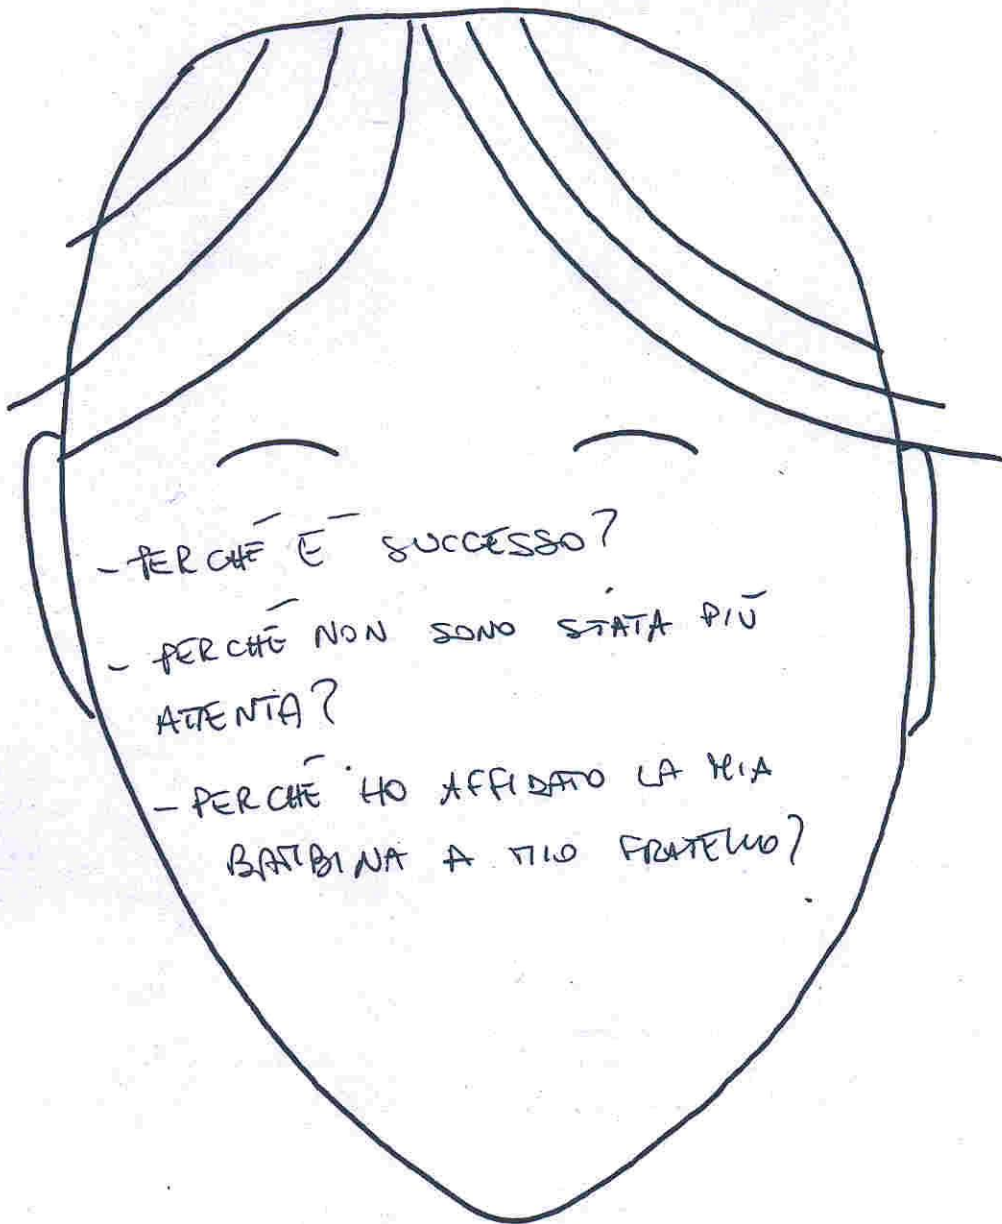 - PERCHÉ É SUCCESSO?
- PERCHÉ NON SONO STATA PIÚ
ATTENTA?
- PERCHÉ HO AFFIDATO LA MIA
BAMBINA A MIO FRATELLO?